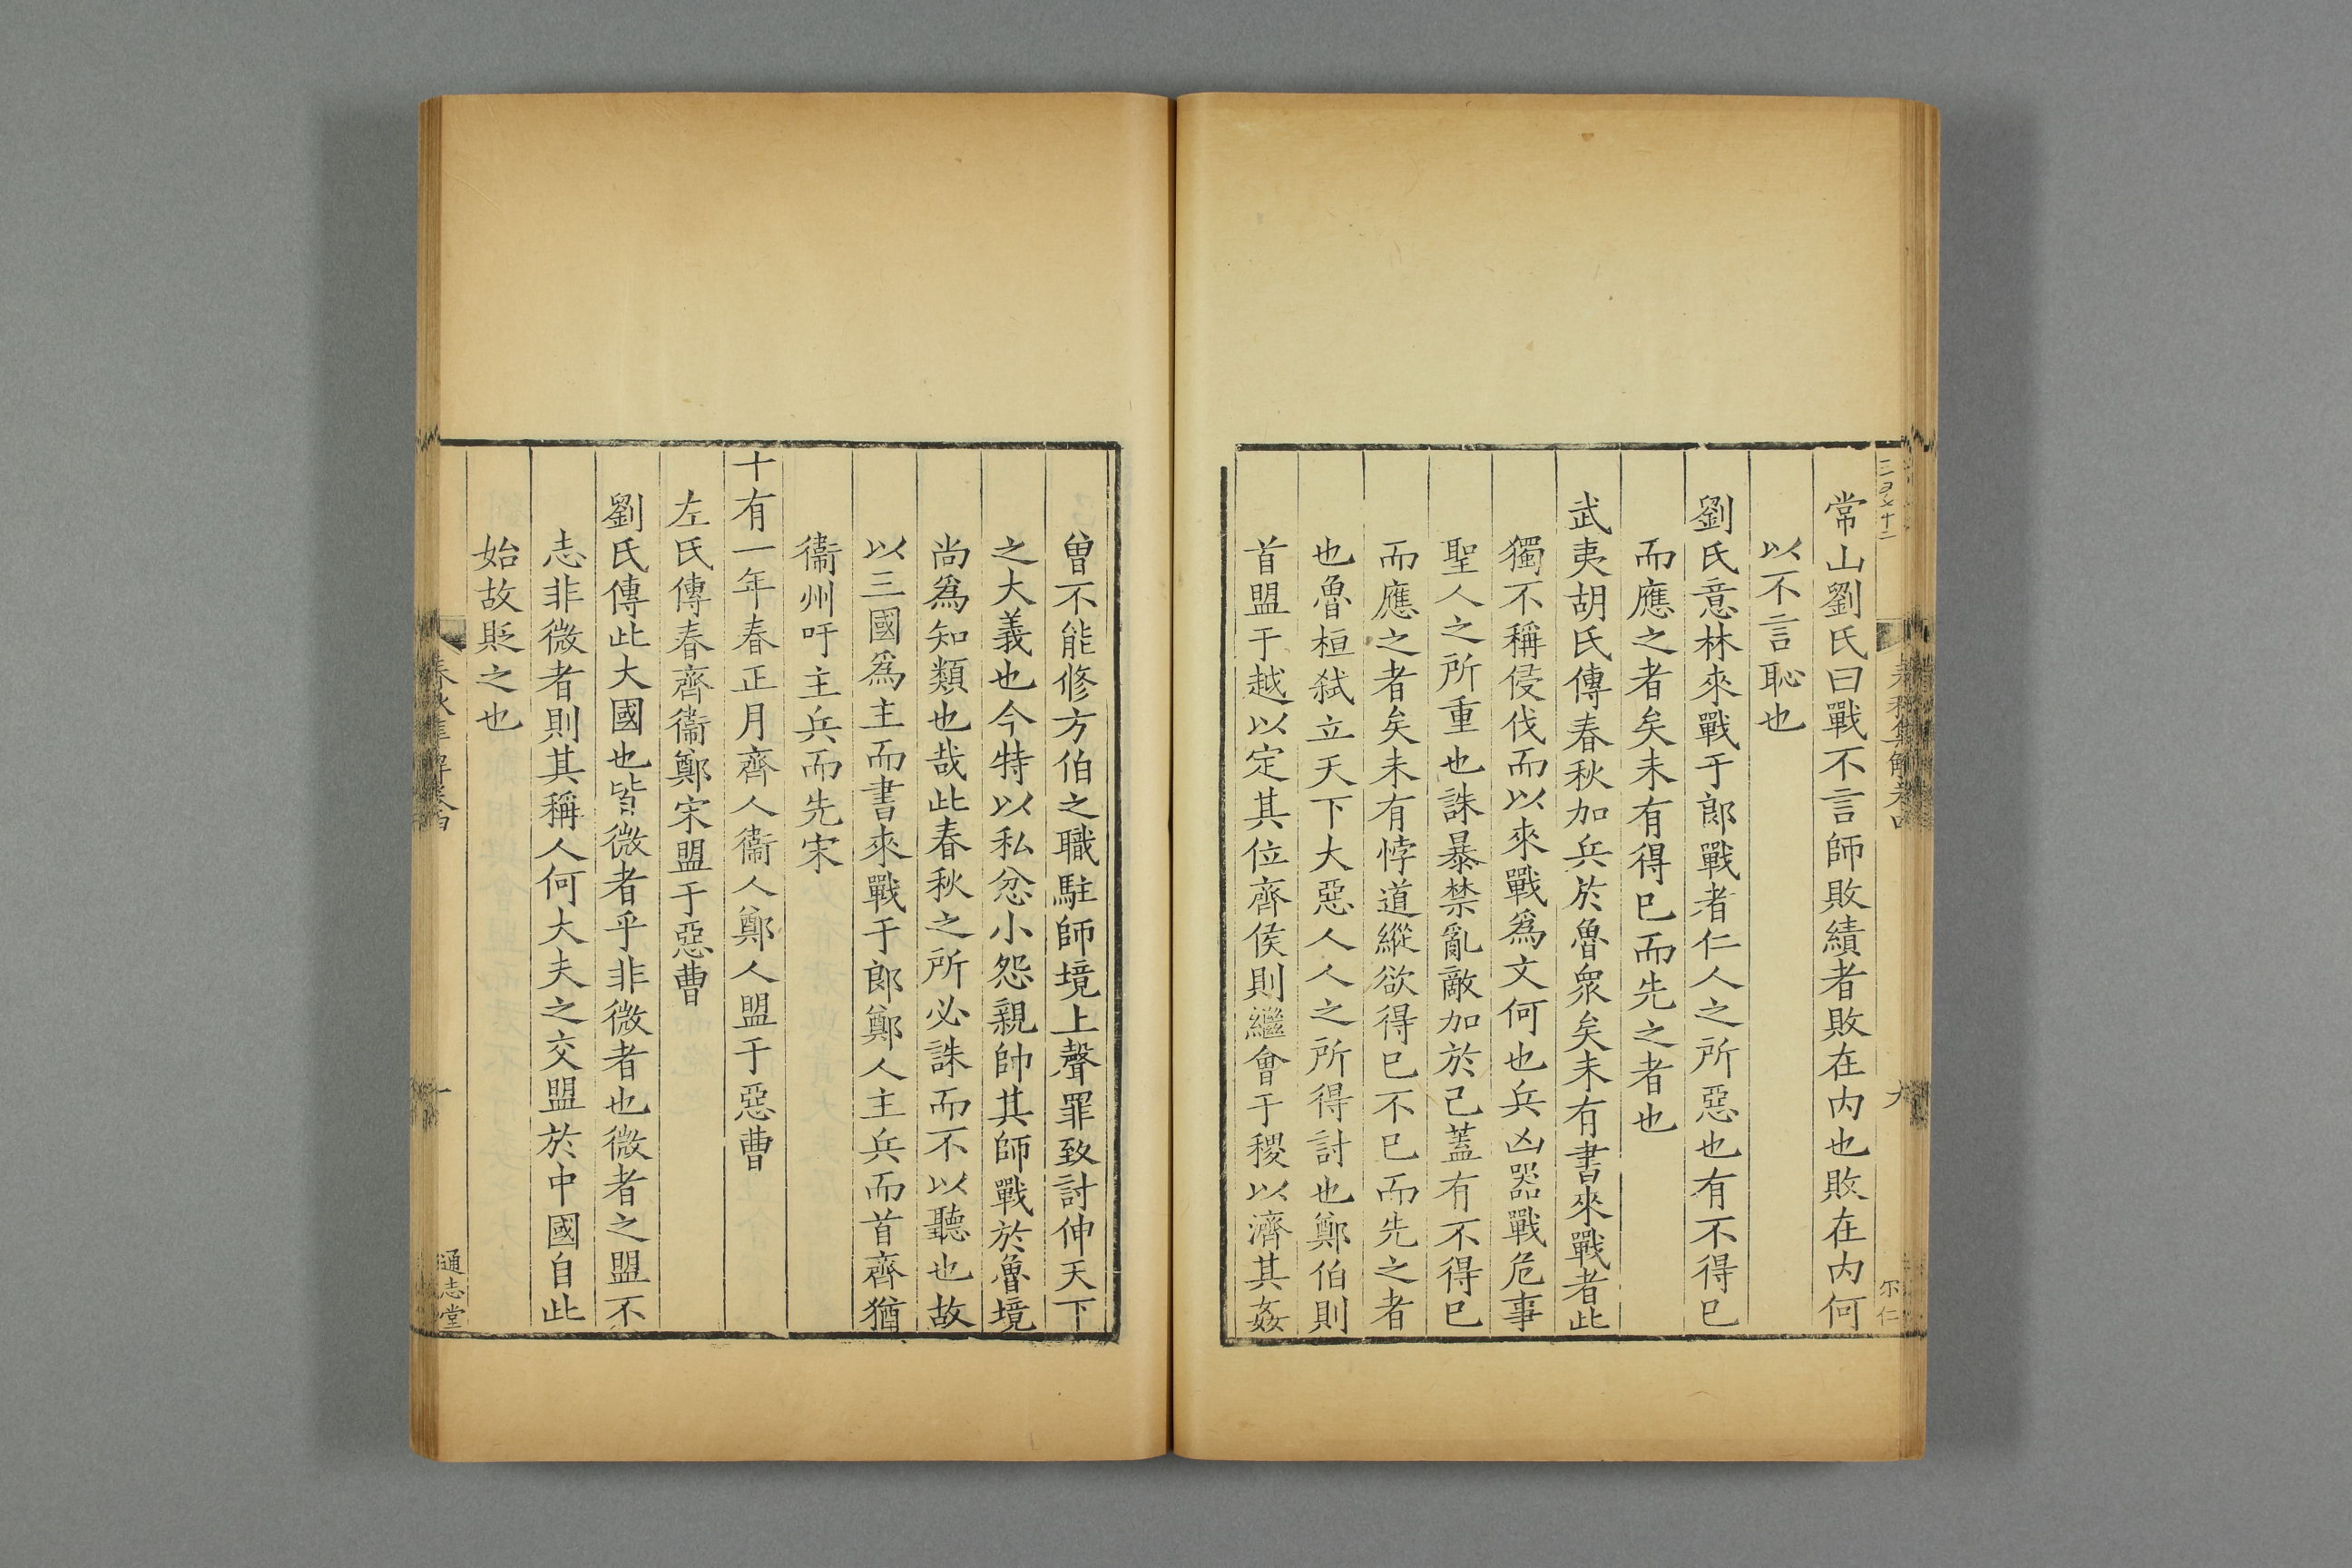 常山劉氏曰戰不言師敗績者敗在内也敗在内何
以不言恥也
劉氏意林來戰于郎戰者仁人之所惡也有不得已
而應之者矣未有得已而先之者也
武夷胡氏傳春秋加兵於魯眾矣未有書來戰者此
獨不稱侵伐而以來戰爲文何也兵凶器戰危事
聖人之所重也誅暴禁亂敵加於己蓋有不得已
而應之者矣未有悖道縱欲得已不已而先之者
也魯桓弑立天下大惡人人之所得討也鄭伯則
首盟于越以定其位齊侯則繼會于稷以濟其姦
曾不能修方伯之職駐師境上聲罪致討伸天下
之大義也今特以私忿小怨親帥其師戰於魯境
尚爲知類也哉此春秋之所必誅而不以聽也故
以三國爲主而書來戰于郎鄭人主兵而首齊猶
衞州吁主兵而先宋
十有一年春正月齊人衞人鄭人盟于惡曹
左氏傳春齊衞鄭宋盟于惡曹
劉氏傳此大國也皆微者乎非微者也微者之盟不
志非微者則其稱人何大夫之交盟於中國自此
始故貶之也
通志堂